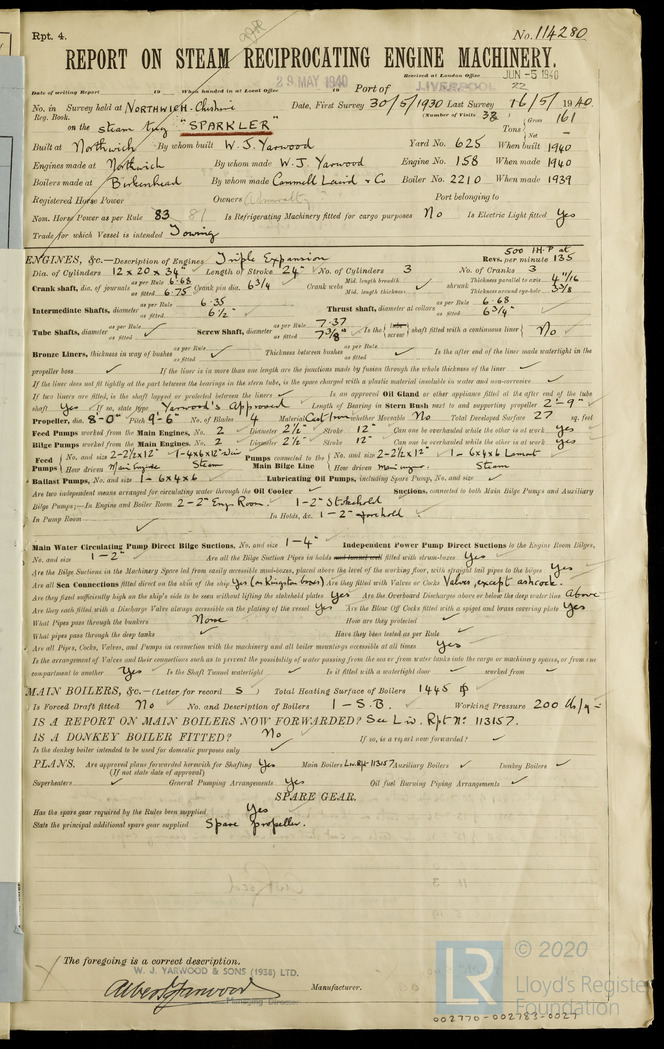 Rpt. 4.
No. 114280
REPORT ON STEAM RECIPROCATING ENGINE MACHINERY.
Received at London Office JUN -5 1940
29 MAY 1940
Date of writing Report 19 When handed in at Local Office 19 Port of LIVERPOOL
No. in Survey held at NORTHWICH. Cheshire Date, First Survey 30/5/1930 Last Survey 16/5/1940
Reg. Book. (Number of Visits 38)
on the steam tug "SPARKLER" Tons Gross 161 Net -
Built at Northwich By whom built W. J. Yarwood Yard No. 625 When built 1940
Engines made at Northwich By whom made W. J. Yarwood Engine No. 158 When made 1940
Boilers made at Birkenhead By whom made Cammell Laird & Co Boiler No. 2210 When made 1939
Registered Horse Power Owners Admiralty Port belonging to
Nom. Horse Power as per Rule 83 81 Is Refrigerating Machinery fitted for cargo purposes No Is Electric Light fitted Yes
Trade for which Vessel is intended Towing
ENGINES, &c.—Description of Engines Triple Expansion 500 IH.P at Revs. per minute 135
Dia. of Cylinders 12 x 20 x 34" Length of Stroke 24" No. of Cylinders 3 No. of Cranks 3
Crank shaft, dia. of journals as per Rule 6.68 as fitted 6.75 Crank pin dia. 6 3/4 Crank webs Mid. length breadth Mid. length thickness shrunk Thickness parallel to axis 4 1/16 Thickness around eye-hole 3 3/8
Intermediate Shafts, diameter as per Rule 6.35 as fitted 6 1/2" Thrust shaft, diameter at collars as per Rule 6.68 as fitted 6 3/4"
Tube Shafts, diameter as per Rule as fitted Screw Shaft, diameter as per Rule 7.37 as fitted 7 3/8" Is the tube screw shaft fitted with a continuous liner No
Bronze Liners, thickness in way of bushes as per Rule as fitted Thickness between bushes as per Rule as fitted Is the after end of the liner made watertight in the
propeller boss If the liner is in more than one length are the junctions made by fusion through the whole thickness of the liner
If the liner does not fit tightly at the part between the bearings in the stern tube, is the space charged with a plastic material insoluble in water and non-corrosive
If two liners are fitted, is the shaft lapped or protected between the liners Is an approved Oil Gland or other appliance fitted at the after end of the tube
shaft Yes If so, state type Yarwood's Approved Length of Bearing in Stern Bush next to and supporting propeller 2'-9"
Propeller, dia. 8'-0" Pitch 9'-6" No. of Blades 4 Material Cast Iron whether Moveable No Total Developed Surface 27 sq. feet
Feed Pumps worked from the Main Engines, No. 2 Diameter 2 1/2" Stroke 12" Can one be overhauled while the other is at work yes
Bilge Pumps worked from the Main Engines, No. 2 Diameter 2 1/2" Stroke 12" Can one be overhauled while the other is at work yes
Feed Pumps No. and size 2-2 1/2 x 12" 1-4x6x12" Weir Pumps connected to the Main Bilge Line No. and size 2-2 1/2 x 12" 1-6x4x6 Lamont
How driven Main Engine Steam How driven main engine. Steam
Ballast Pumps, No. and size 1-6x4x6 Lubricating Oil Pumps, including Spare Pump, No. and size
Are two independent means arranged for circulating water through the Oil Cooler Suctions, connected to both Main Bilge Pumps and Auxiliary
Bilge Pumps;—In Engine and Boiler Room 2-2" Eng. Room. 1-2" Stokehold
In Pump Room In Holds, &c. 1-2" forehold.
Main Water Circulating Pump Direct Bilge Suctions, No. and size 1-4" Independent Power Pump Direct Suctions to the Engine Room Bilges,
No. and size 1-2" Are all the Bilge Suction Pipes in holds and tunnel well fitted with strum-boxes Yes
Are the Bilge Suctions in the Machinery Space led from easily accessible mud-boxes, placed above the level of the working floor, with straight tail pipes to the bilges Yes
Are all Sea Connections fitted direct on the skin of the ship Yes (on Kingston boxes) Are they fitted with Valves or Cocks Valves, except ashcock.
Are they fixed sufficiently high on the ship's side to be seen without lifting the stokehold plates Yes Are the Overboard Discharges above or below the deep water line Above
Are they each fitted with a Discharge Valve always accessible on the plating of the vessel Yes Are the Blow Off Cocks fitted with a spigot and brass covering plate Yes
What Pipes pass through the bunkers None How are they protected
What pipes pass through the deep tanks Have they been tested as per Rule
Are all Pipes, Cocks, Valves, and Pumps in connection with the machinery and all boiler mountings accessible at all times Yes
Is the arrangement of Valves and their connections such as to prevent the possibility of water passing from the sea or from water tanks into the cargo or machinery spaces, or from one
compartment to another Yes Is the Shaft Tunnel watertight Is it fitted with a watertight door worked from
MAIN BOILERS, &c.—(Letter for record S) Total Heating Surface of Boilers 1445
Is Forced Draft fitted No No. and Description of Boilers 1 - S.B. Working Pressure 200
IS A REPORT ON MAIN BOILERS NOW FORWARDED? See Liv. Rpt No. 113157.
IS A DONKEY BOILER FITTED? No If so, is a report now forwarded?
Is the donkey boiler intended to be used for domestic purposes only
PLANS. Are approved plans forwarded herewith for Shafting Yes Main Boilers Liv. Rpt 113157 Auxiliary Boilers Donkey Boilers
(If not state date of approval)
Superheaters General Pumping Arrangements Yes Oil fuel Burning Piping Arrangements
SPARE GEAR.
Has the spare gear required by the Rules been supplied Yes
State the principal additional spare gear supplied Spare propeller.
The foregoing is a correct description.
W. J. YARWOOD & SONS (1938) LTD.
Albert Yarwood Manufacturer.
Managing Director
© 2020
LR
Lloyd's Register
Foundation
002770-002783-0027